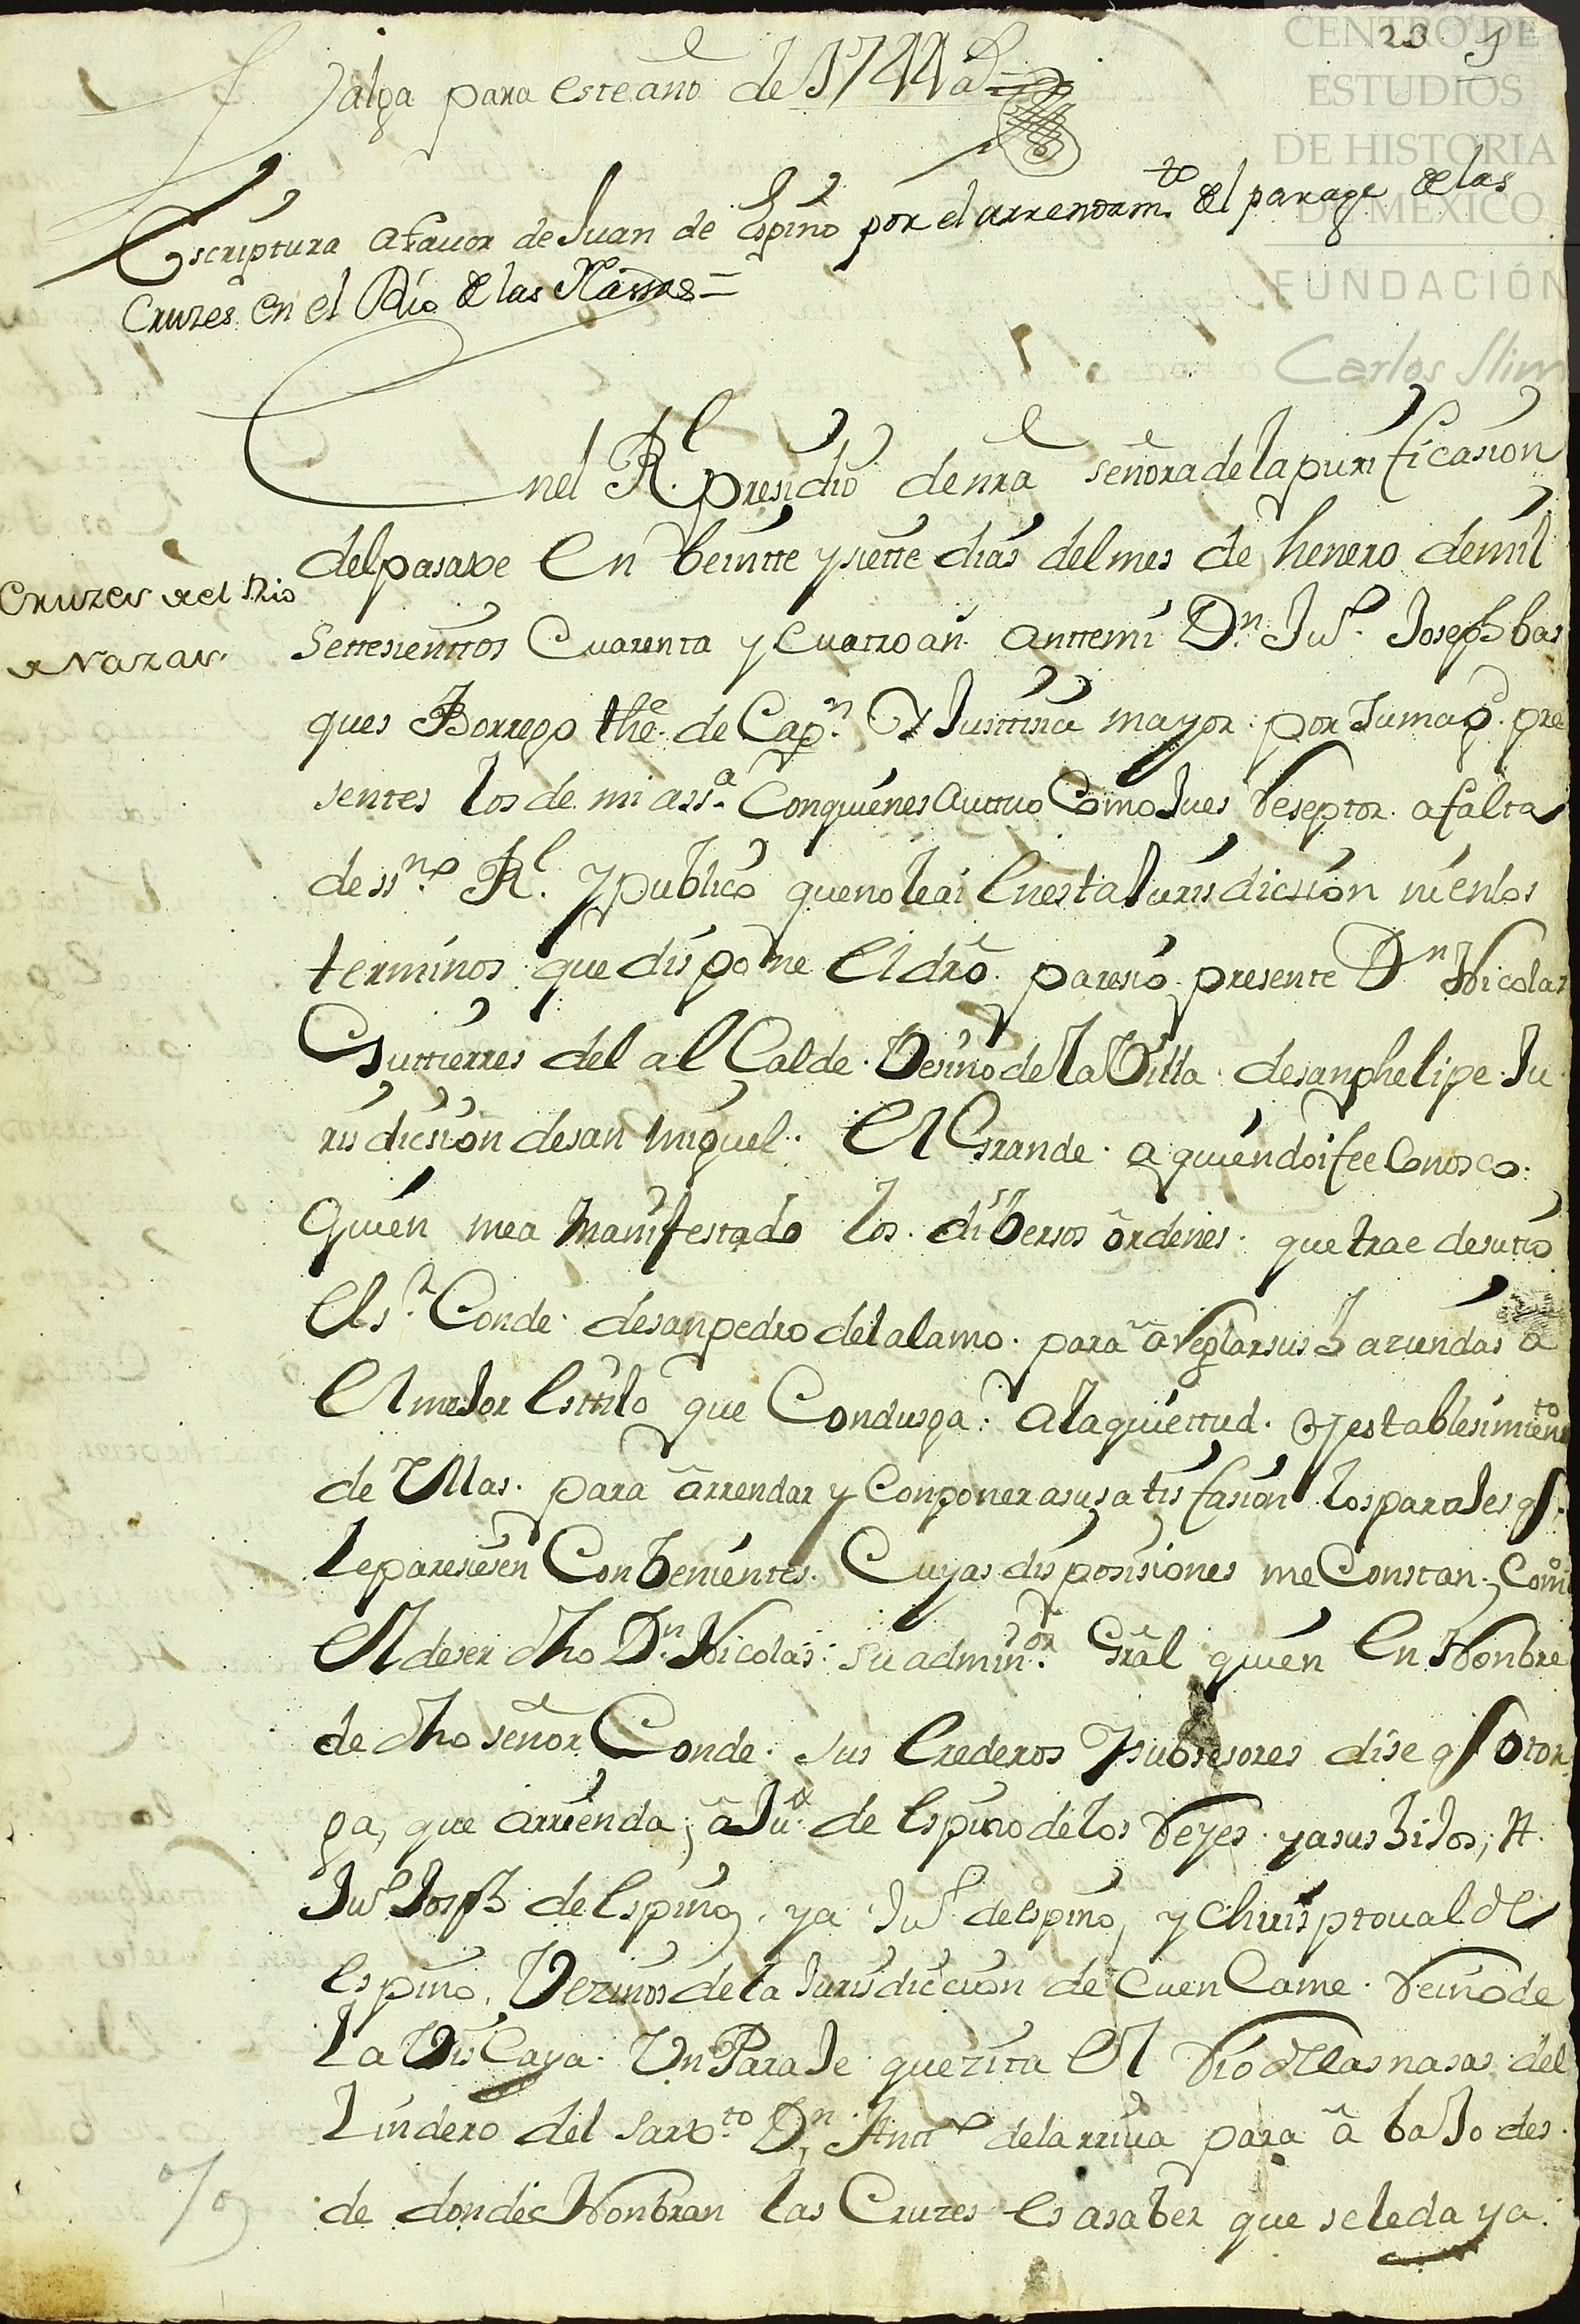 CENTRO DE
ESTUDIOS
DE HISTORIA
DE MÉXICO
FUNDACIÓN
Carlos Slim
23
Valga para este año de 1744 a.s
Escriptura a fauor de Juan de Espino por el arrendam.to del parage de las
Cruzes en el Rio de las Nassas =
Cruzes del Rio
de Nazas.
En el R.l presidio de nra señora de la purificasion
del pasaxe En beintte y siette dias del mes de henero de mil
Settesienttos Cuarenta y Cuatro añ. Anttemi D.n Ju.o Joseph bas
ques Borrego the. de Cap.n Y Justtisia mayor por su mag.d pre
sentes los de mi ass.a Con quienes Acttuo Como Jues Reseptor a falta
de ss.no R.l y publico que no le ai En esta Jurisdicsion ni en los
terminos que dispone El dro. paresio presente D.n Nicolas
Guttierres del al Calde. Vesino de la Villa de san phelipe Ju
risdicsion de san Miguel. El Grande. a quien doi fee Conosco.
Quien me a Manifestado los dibersos ordenes. que trae de su tio
El s.r Conde. de san pedro del alamo. para a Reglar sus haziendas a
El mejor Esttilo que Condusga. A la quiettud. Y establesimiento
de Ellas. para arrendar y Componer a su satisfasion los parajes q.e
le paresiesen Conbenientes. Cuyas disposisiones me Constan. Como
El de ser dho D.n Nicolas. su admin.or Gral quien En Nonbre
de dho señor Conde. sus Erederos Y subsesores dise q.e otor
ga, que arrienda, a Ju.o de Espino de los Reyes. y a sus hijos, A.
Ju.o Joseph de Espino, y a Ju.o de espino, y Christoual de
Espino. Vezinos de la Jurisdiccion de Cuencame. Reino de
La Viscaya. Un Paraje que zita El Rio de las nasas del
Lindero del sarx.to D.n Antt.o de larriua para a bajo des
de donde Nonbran las Cruzes Es a saber que se le da ya.